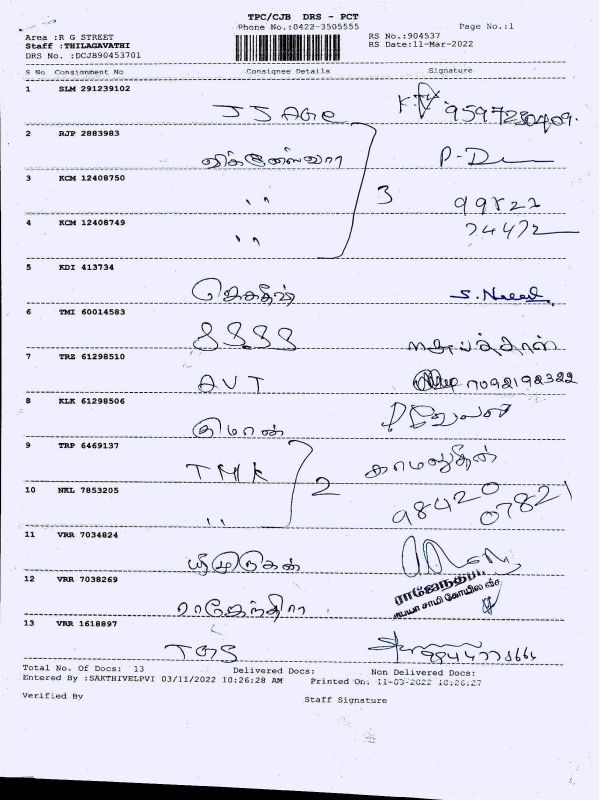 TPC/CJB DRS - PCT
Phone No.:0422-3505555 Page No.:1
Area :R G STREET RS No.:904537
Staff :THILAGAVATHI RS Date:11-Mar-2022
DRS No. :DCJB90453701
S No Consignment No Consignee Details Signature
1 SLM 291239102
JJ AGe 9597230409.
2 RJP 2883983
விக்னேஸ்வரா
3 KCM 12408750
" 3 99822
4 KCM 12408749
" 74472
5 KDI 413734
ஜெகதீஷ்
6 TMI 60014583
8888
7 TRZ 61298510
AVT 7092192322
8 KLK 61298506
9 TRP 6469137
TMK காமலுதீன்
10 NKL 7853205
" 2 98420 07821
11 VRR 7034824
12 VRR 7038269
ராஜேந்திரா
13 VRR 1618897
TGS
Total No. Of Docs: 13 Delivered Docs: Non Delivered Docs:
Entered By :SAKTHIVELPVI 03/11/2022 10:26:28 AM Printed On: 11-03-2022 10:26:27
Verified By Staff Signature